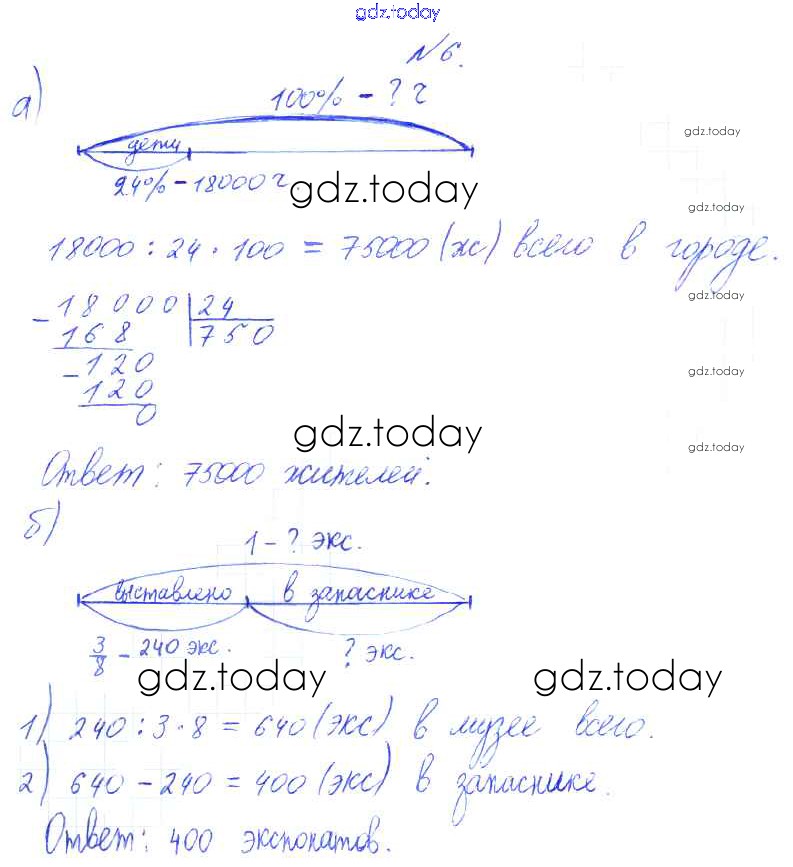 gdz.today
№6.
а)
100% - ? ч
дети
24% - 18000 ч.
gdz.today
gdz.today
gdz.today
18000 : 24 · 100 = 75000 (ж) всего в городе.
gdz.today
- 18000 | 24
168 | 750
- 120
120
0
gdz.today
gdz.today
gdz.today
Ответ: 75000 жителей.
б)
1 - ? экс.
выставлено в запаснике
3/8 - 240 экс. ? экс.
gdz.today gdz.today
1) 240 : 3 · 8 = 640 (экс) в музее всего.
2) 640 - 240 = 400 (экс) в запаснике.
Ответ: 400 экспонатов.